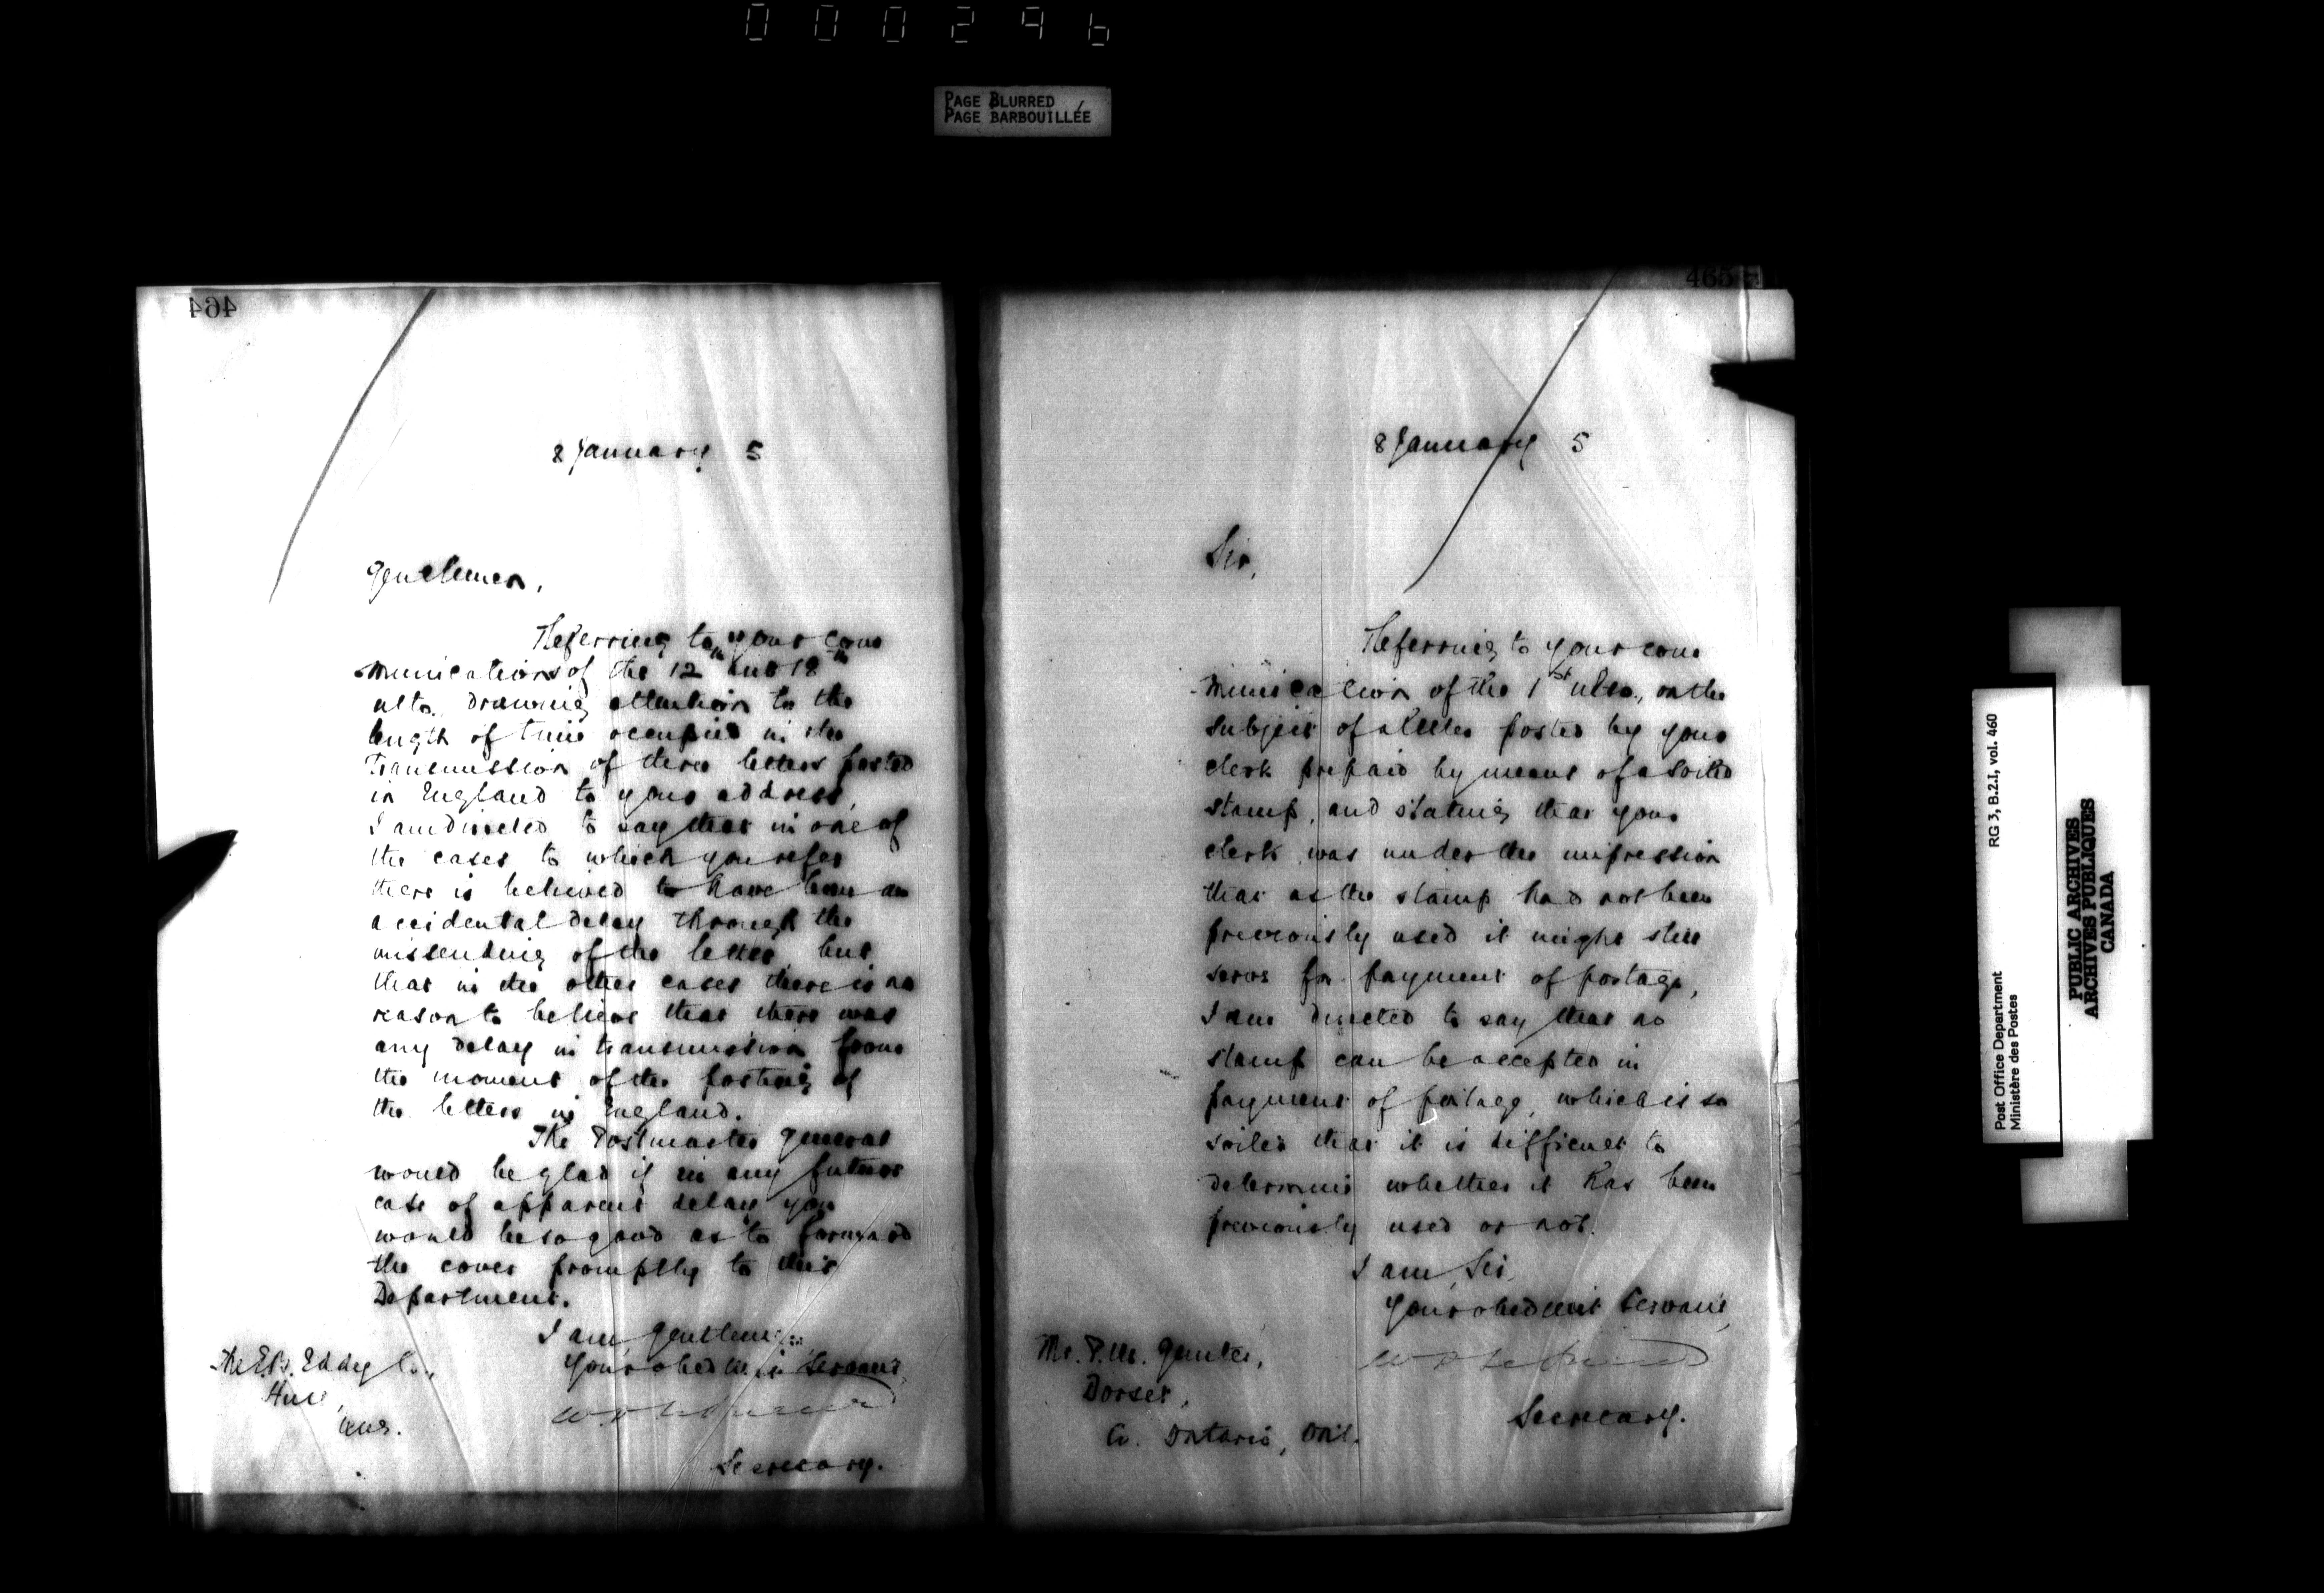 000296
PAGE BLURRED
PAGE BARBOUILLÉE
464
8 January 5
Gentlemen,
Referring to your com
munications of the 12th and 18th
ulto. drawing attention to the
length of time occupied in the
transmission of three letters posted
in England to your address,
I am directed to say that in one of
the cases to which you refer
there is believed to have been an
accidental delay through the
missending of the letter, but
that in the other cases there is no
reason to believe that there was
any delay in transmission from
the moment of the posting of
the letters in England.
The Postmaster General
would be glad if in any future
case of apparent delay you
would be so good as to forward
the cover promptly to this
Department.
I am, Gentlemen,
Your obedient Servant,
Secretary.
The E.B. Eddy Co.,
Hull,
Que.
465
8 January 5
Sir,
Referring to your com
munication of the 1st ulto., on the
subject of a letter posted by your
clerk prepaid by means of a soiled
stamp, and stating that your
clerk was under the impression
that as the stamp had not been
previously used it might still
serve for payment of postage,
I am directed to say that no
stamp can be accepted in
payment of postage, which is so
soiled that it is difficult to
determine whether it has been
previously used or not.
I am, Sir,
Your obedient Servant,
Secretary.
Mr. P.
Dorset,
Co. Ontario, Ont.
Post Office Department
Ministère des Postes
RG 3, B.2.I, vol. 460
PUBLIC ARCHIVES
ARCHIVES PUBLIQUES
CANADA